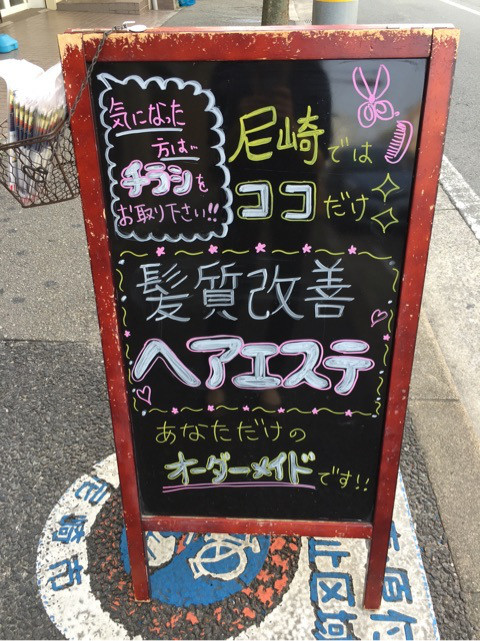 気になった
方は
チラシを
お取り下さい!!
尼崎では
ココだけ
髪質改善
ヘアエステ
あなただけの
オーダーメイドです!!
尼崎市